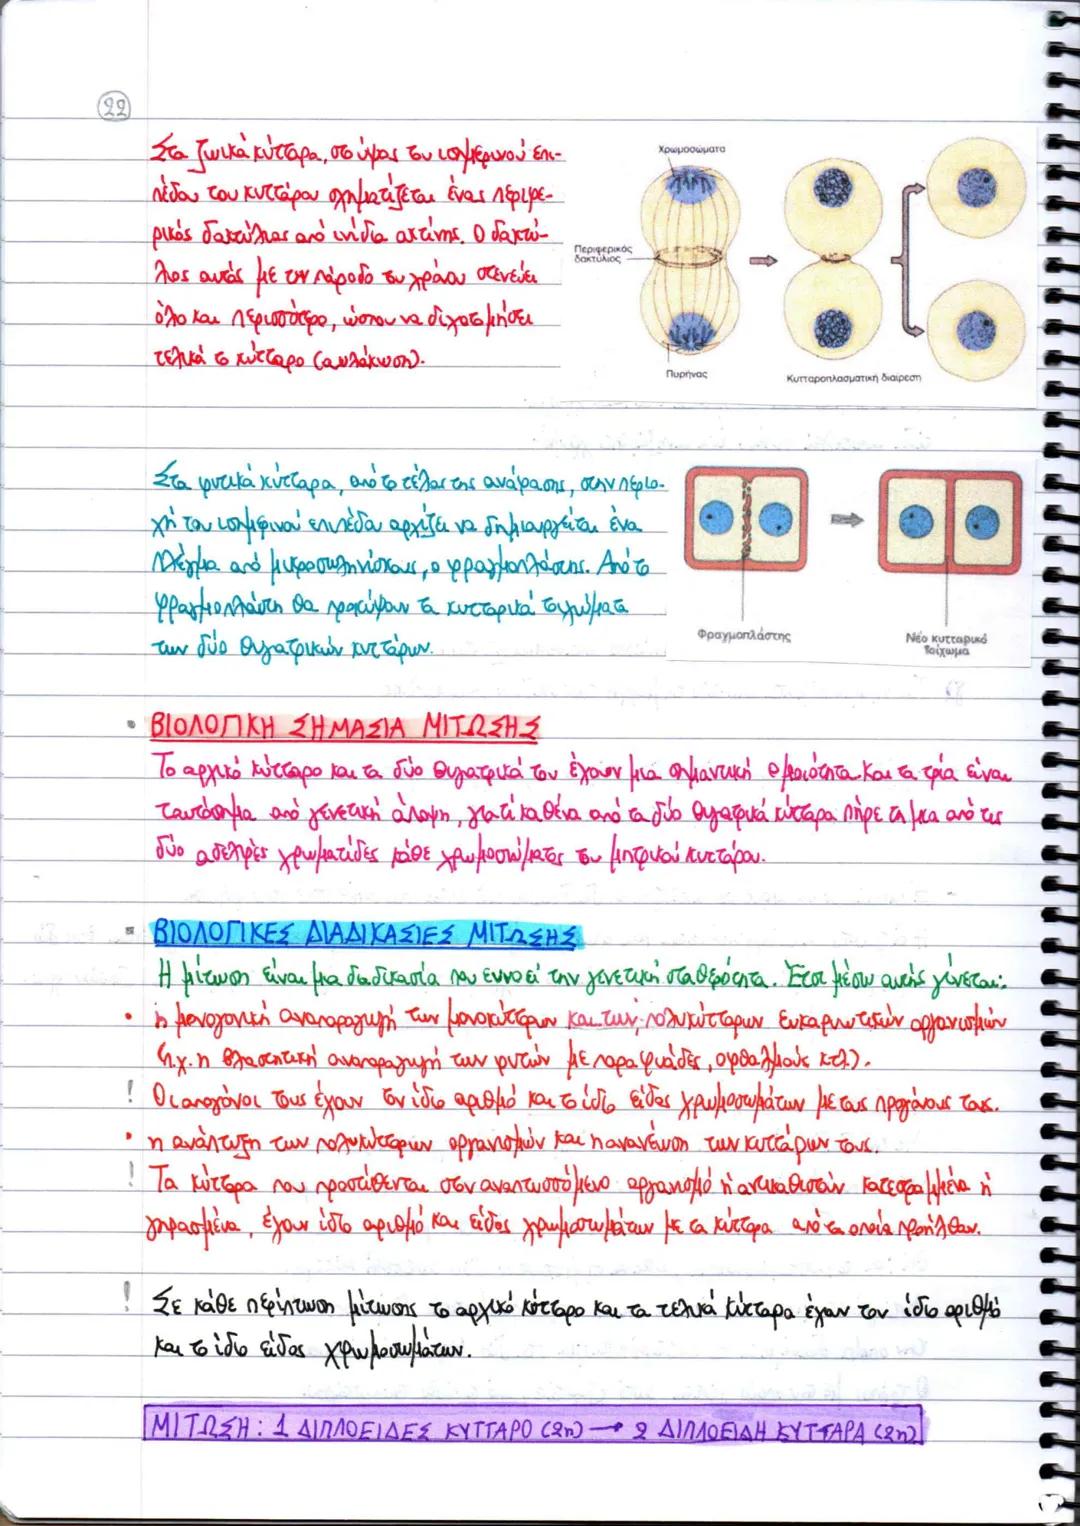 22
Στα ζωικά κύτταρα, στο ύψος του ισημερινού επι-
πέδου του κυττάρου σχηματίζεται ένας περιφε-
ρικός δακτύλιος από ινίδια ακτίνης. Ο δακτύ-
λιος αυτός με την πάροδο του χρόνου στενεύει
όλο και περισσότερο, ώσπου να διχοτομήσει
τελικά το κύτταρο (αυλάκωση).
Χρωμοσώματα
Περιφερικός
δακτύλιος
Πυρήνας
Κυτταροπλασματική διαίρεση
Στα φυτικά κύτταρα, από το τέλος της ανάφασης, στην περιο-
χή του ισημερινού επιπέδου αρχίζει να δημιουργείται ένα
πλέγμα από μικροσωληνίσκους, ο φραγμοπλάστης. Από το
φραγμοπλάστη θα προκύψουν τα κυτταρικά τοιχώματα
των δύο θυγατρικών κυττάρων.
Φραγμοπλάστης
Νέο κυτταρικό
τοίχωμα
• ΒΙΟΛΟΓΙΚΗ ΣΗΜΑΣΙΑ ΜΙΤΩΣΗΣ
Το αρχικό κύτταρο και τα δύο θυγατρικά του έχουν μια σημαντική ομοιότητα. Και τα τρία είναι
ταυτόσημα από γενετική άποψη, γιατί καθένα από τα δύο θυγατρικά κύτταρα πήρε τη μια από τις
δύο αδελφές χρωματίδες κάθε χρωμοσώματος του μητρικού κυττάρου.
• ΒΙΟΛΟΓΙΚΕΣ ΔΙΑΔΙΚΑΣΙΕΣ ΜΙΤΩΣΗΣ
Η μίτωση είναι μια διαδικασία που ευνοεί την γενετική σταθερότητα. Έτσι μέσω αυτής γίνεται:
• η μονογονική αναπαραγωγή των μονοκύτταρων και των πολυκύτταρων ευκαρυωτικών οργανισμών
(π.χ. η βλαστητική αναπαραγωγή των φυτών με παραφυάδες, οφθαλμούς κτλ.).
! Οι απογόνοι τους έχουν τον ίδιο αριθμό και το ίδιο είδος χρωμοσωμάτων με τους προγόνους τους.
• η ανάπτυξη των πολυκύτταρων οργανισμών και η ανανέωση των κυττάρων τους.
! Τα κύτταρα που προστίθενται στον αναπτυσσόμενο οργανισμό ή αντικαθιστούν κατεστραμμένα ή
γηρασμένα, έχουν ίδιο αριθμό και είδος χρωμοσωμάτων με τα κύτταρα από τα οποία προήλθαν.
! Σε κάθε περίπτωση μίτωσης το αρχικό κύτταρο και τα τελικά κύτταρα έχουν τον ίδιο αριθμό
και το ίδιο είδος χρωμοσωμάτων.
ΜΙΤΩΣΗ : 1 ΔΙΠΛΟΕΙΔΕΣ ΚΥΤΤΑΡΟ (2n) → 2 ΔΙΠΛΟΕΙΔΗ ΚΥΤΤΑΡΑ (2n)